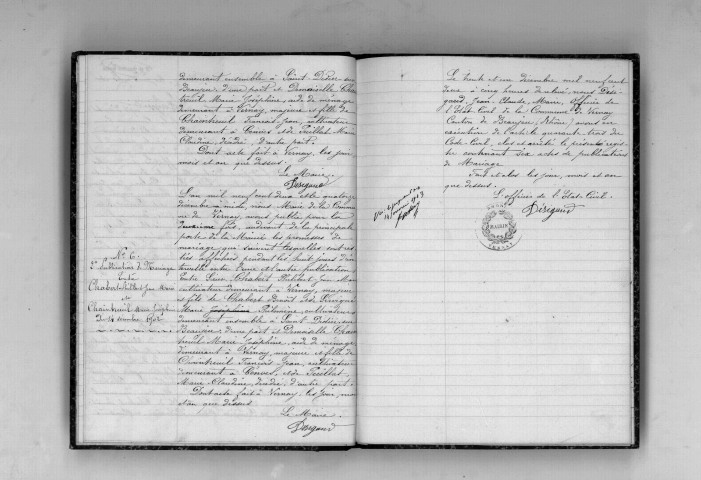 demeurant ensemble à Saint-Didier-sur
Beaujeu, d'une part et Demoiselle Chain
treuil Marie Joséphine, aide de ménage
demeurant à Vernay, majeure et fille de
Chaintreuil François Jean, cultivateur
demeurant à Cenves, et de Peillet Marie
Claudine, décédée, d'autre part.
Dont acte fait à Vernay, les jour
mois et an que dessus.
Le Maire,
Dérigaud
N° 6.
2e Publication de Mariage
Entre
Chabert Philibert Jean Marie
et
Chaintreuil Marie Joséphine
Du 14 décembre 1902
L'an mil neuf cent deux et le quatorze
décembre à midi, nous Maire de la Commu
ne de Vernay, avons publié pour la
deuxième fois, au devant de la principale
porte de la Mairie les promesses de
mariage qui suivent lesquelles sont res
tées affichées pendant les huit jours d'in
tervalle entre l'une et l'autre publication,
Entre Sieur Chabert Philibert Jean Marie
cultivateur demeurant à Vernay, majeur
et fils de Chabert Benoît et de
Marie Joséphine Philomène, cultivateurs
demeurant ensemble à Saint Didier sur
Beaujeu, d'une part et Demoiselle Chain
treuil Marie Joséphine, aide de ménage
demeurant à Vernay, majeure et fille de
Chaintreuil François Jean, cultivateur
demeurant à Cenves, et de Peillet
Marie Claudine, décédée, d'autre part.
Dont acte fait à Vernay, les jour, mois
et an que dessus.
Le Maire,
Dérigaud
Le trente et un décembre mil neuf cent
deux à cinq heures du soir, nous Déri
gaud Jean-Claude, Maire, officier de
l'Etat-Civil de la Commune de Vernay
Canton de Beaujeu (Rhône) avons en
exécution de l'article quarante trois du
Code Civil, clos et arrêté le présent regis
tre contenant six actes de publications
de Mariage
Fait et clos les jour, mois et an
que dessus.
L'officier de l'Etat-Civil.
Dérigaud
1903
MAIRIE